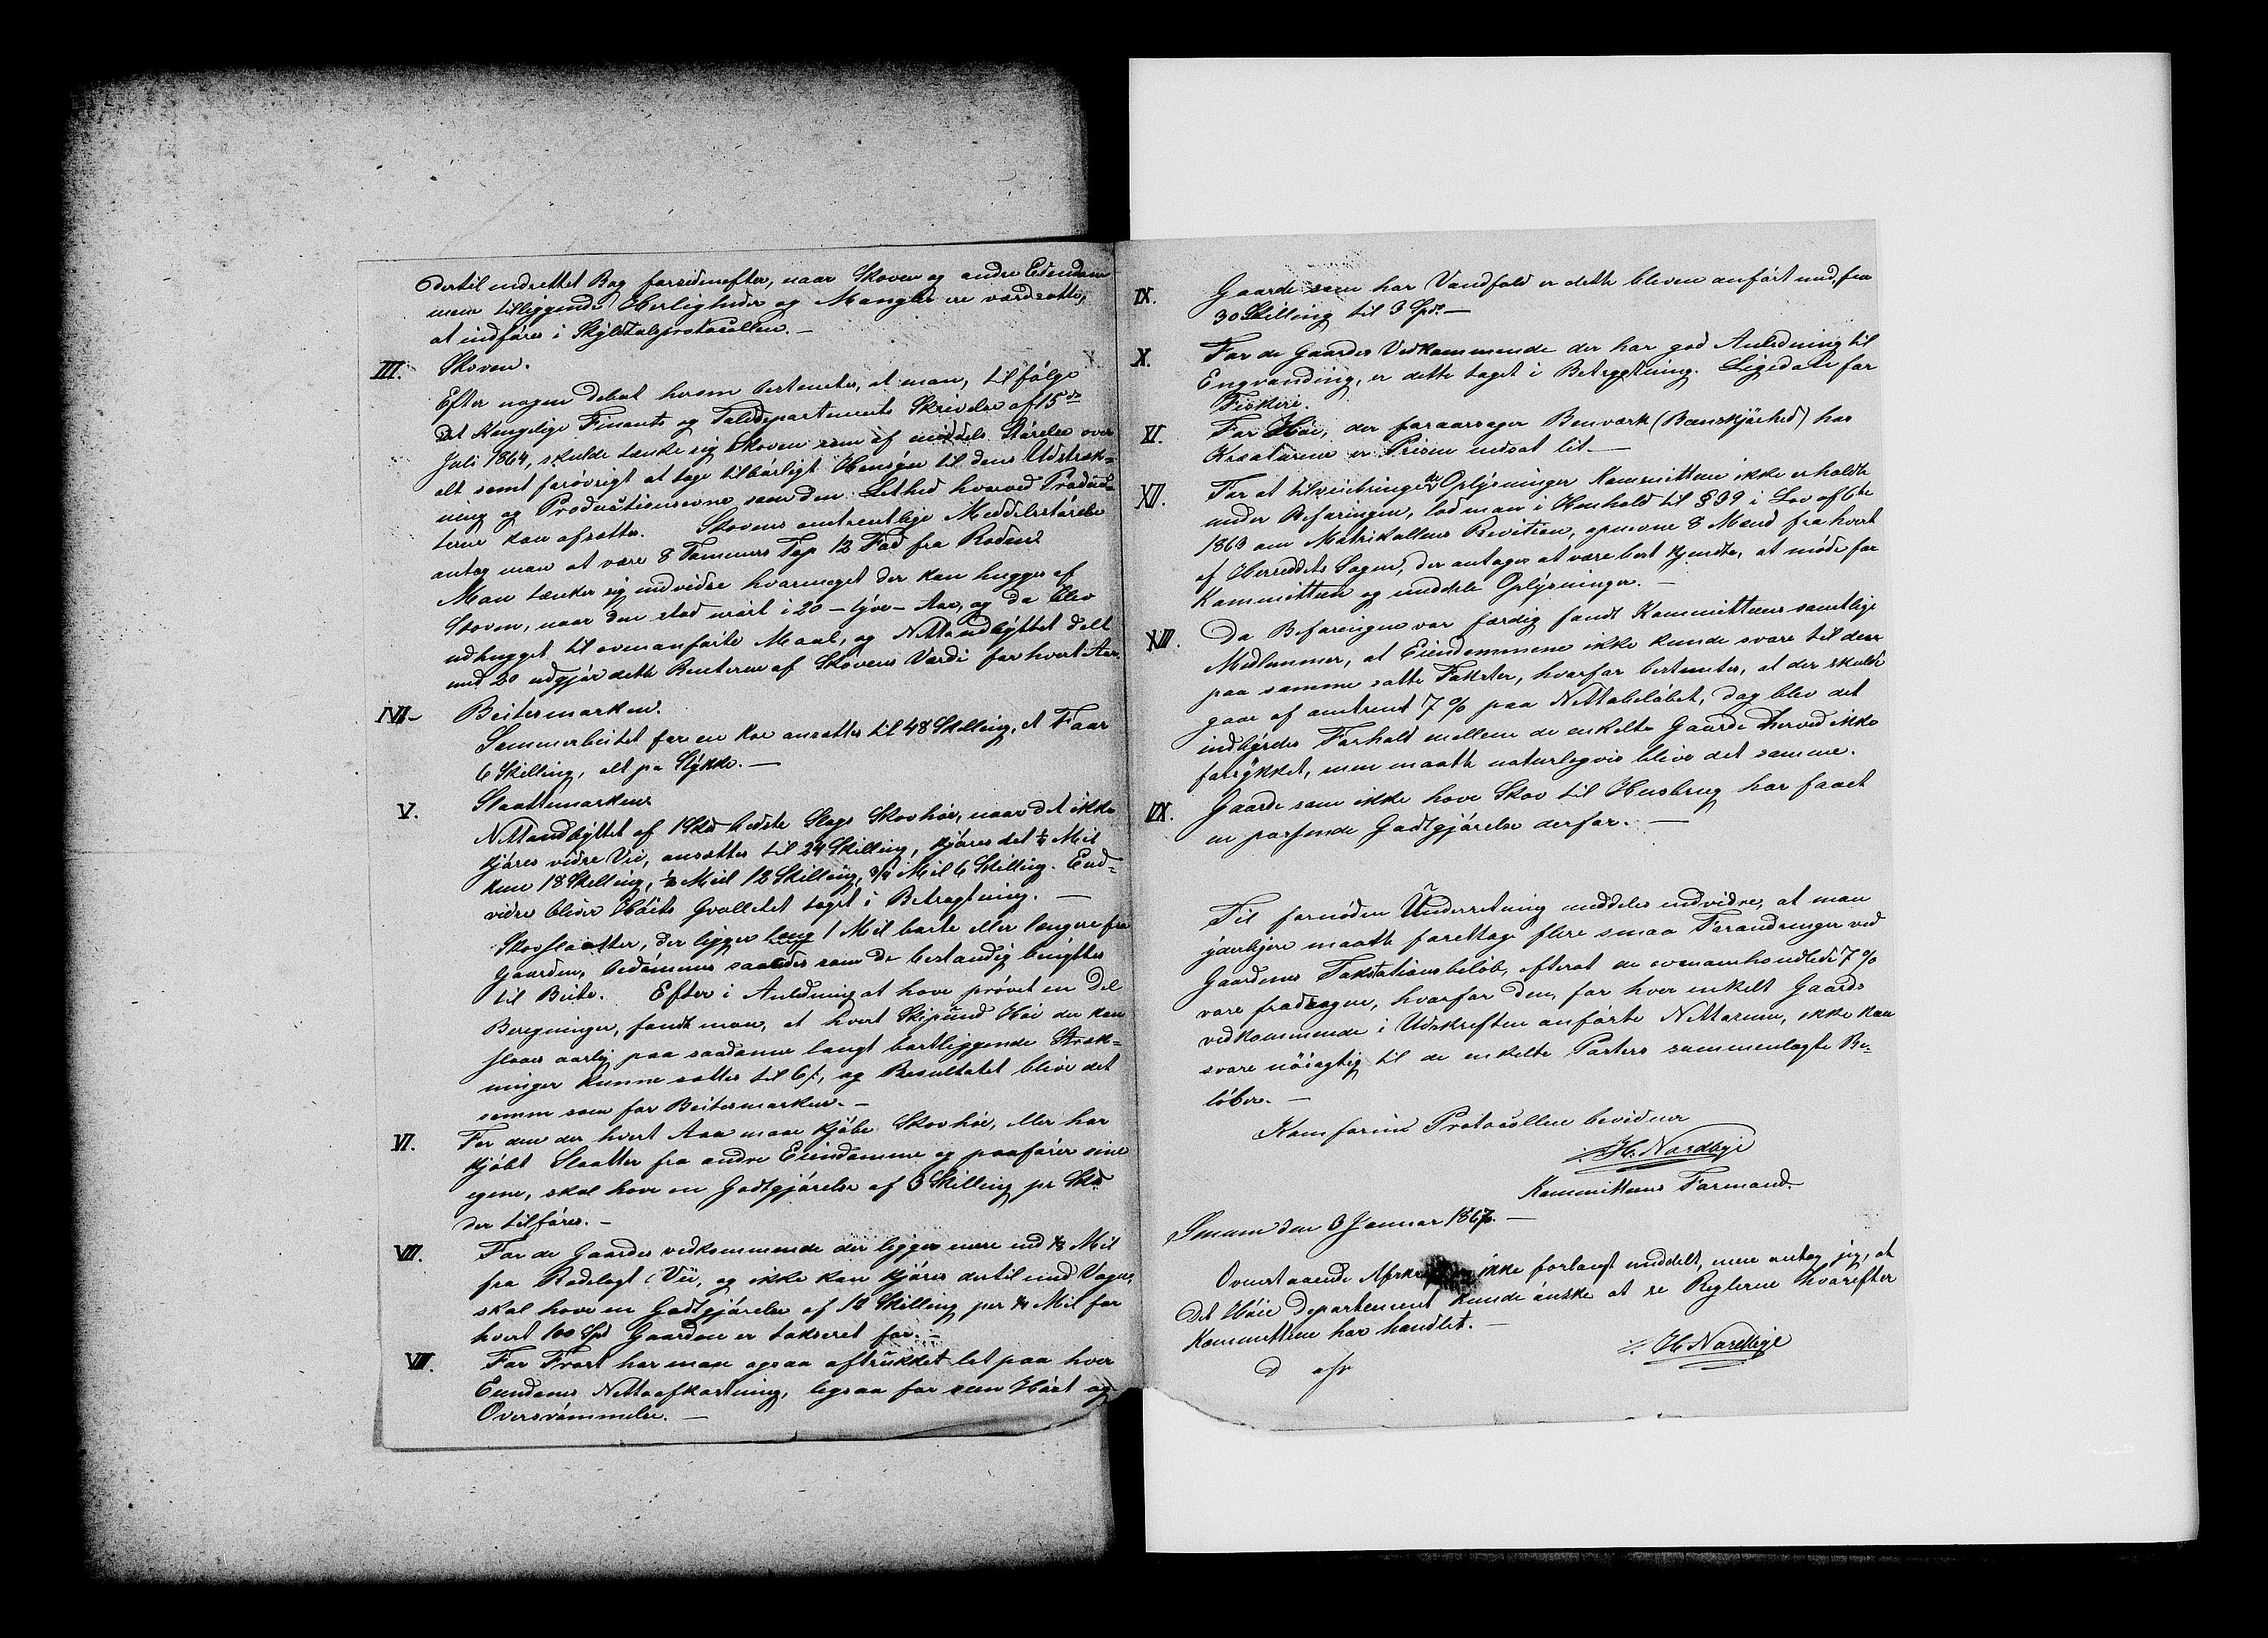 dertil indrettet Bog forsidenefter, naar Skoven og andre Eiendom
men tilliggende Herligheder og Mangler ere værdsatte,
at indføres i Skyldtalsprotocollen. —
III. Skoven.
Efter nogen debat herom bestemtes, at man, til følge
Det Kongelige Finants og Tolddepartements Skrivelse af 15de
Juli 1864, skulde tænke sig Skoven som af middels Størelse over
alt samt forøvrigt at tage tilbørligt Hensyn til dens Udstræk-
ning og Productionsevne samt den Lethed hvorved Produc-
terne kan afsættes. Skovens omtrentlige Meddelsstørelse
antog man at være 8 Tommers Top 12 Fod fra Roden.
Man tænker sig endvidre hvormeget der kan hugges af
Skoven, naar den stod urørt i 20 — tyve — Aar, og da blev
udhugget til ovenanførte Maal, og Nettoudbyttet delt
med 20 udgjør dette Renterne af Skovens Værdi for hvert Aar.
IVI— Beitesmarken.
Sommerbeitet for en Koe ansættes til 48 Skilling, et Faar
6 Skilling, alt pr Stykke. —
V. Slaattemarken
Nettoudbyttet af 1 Sk℔ bedste Slags Skovhøe, naar det ikke
kjøres vidre Vei, ansættes til 24 Skilling, kjøres det ¼ Mil
kun 18 Skilling, ½ Miil 12 Skilling, ¾ Mil 6 Skilling. End-
vidre bliver Høiets Qvallitet taget i Betragtning. —
Skovslaatter, der ligger lang 1 Mil borte eller længere fra
Gaarden, bedømmes saaledes som de bestandig benyttes
til Beite. Efter i Anledning at have prøvet en Del
Beregninger, fandt man, at hvert Skipund Høi der kan
slaaes aarlig paa saadanne langt bortliggende Stræk-
ninger kunne sættes til 6 ß, og Resultatet blive det
samme som for Beitesmarken. —
VI. For den der hvert Aar maae kjøbe Skovhøe, eller har
kjøbt Slaatter fra andre Eiendomme og paafører sine
egene, skal have en Godtgjørelse af 3 Skilling pr Sk℔
der tilføres. —
VII. For de Gaardes vedkommende der ligger mere end ⅛ Mil
fra Rodelagt Vei, og ikke kan kjøres dertil med Vogn,
skal have en Godtgjørelse af 12 Skilling per ¼ Mil for
hvert 100 Spd Gaarden er takseret for. —
VIII. For Frost har man ogsaa aftrukket let paa hver
Eiendoms Nettoafkastning, ligsaa for sen Høst og
Oversvømmelse. —
IX. Gaarde som har Vandfald er dette bleven anført med, fra
30 Skilling til 3 Spd. —
X. For de Gaardes Vedkommende der har god Anledning til
Engvanding, er dette taget i Betragtning. Ligedan for
Fiskeri.
XI. For Høi, der foraarsager Benværk (Benskjørhed) hos
Kreaturene er Prisen nedsat lit. —
XII. For at tilveiebringe de Oplysninger Kommitteen ikke erholdte
under Befaringen, lod man i Henhold til § 39 i Lov af 6te
1863 om Matrikullens Revition, opnevne 8 Mænd fra hvert
af Herreddets Sogne, der antages at være best kjendte, at møde for
Kommitteen og meddele Oplysninger. —
XIII. Da Befaringen var færdig fandt Kommitteens samtlige
Medlemmer, at Eiendommene ikke kunde svare til dem
paa samme satte Takster, hvorfor bestemtes, at der skulde
gaae af omtrent 7 % paa Nettobeløbet, dog blev det
indbyrdes Forhold mellem de enkelte Gaarde derved ikke
forrykket, men maatte naturlegvis blive det samme.
VIX. Gaarde som ikke have Skov til Husbrug har faaet
en passende Godtgjørelse derfor. —
Til fornøden Underretning meddeles endvidre, at man
yderligere maatte foretage flere smaa Forandringer ved
Gaardenes Takstationsbeløb, efterat de ovenomhandlede 7 %
vare fradragne, hvorfor den, for hver enkelt Gaards
vedkommende i Udskriften anførte Nettosum, ikke kan
svare nøiagtig til de enkelte Posters sammenlagte Be-
løber. —
Komform Protocollen bevidner
H. Nordbye
Kommitteens Formand.
Smuen den 3 Januar 1867. —
Ovenstaaende ikke forlangt meddelt, men antog jeg, at
Det Høie Departement kunde ønske at se Reglerne hvorefter
Kommitteen har handlet. —
H. Nordbye
D afs